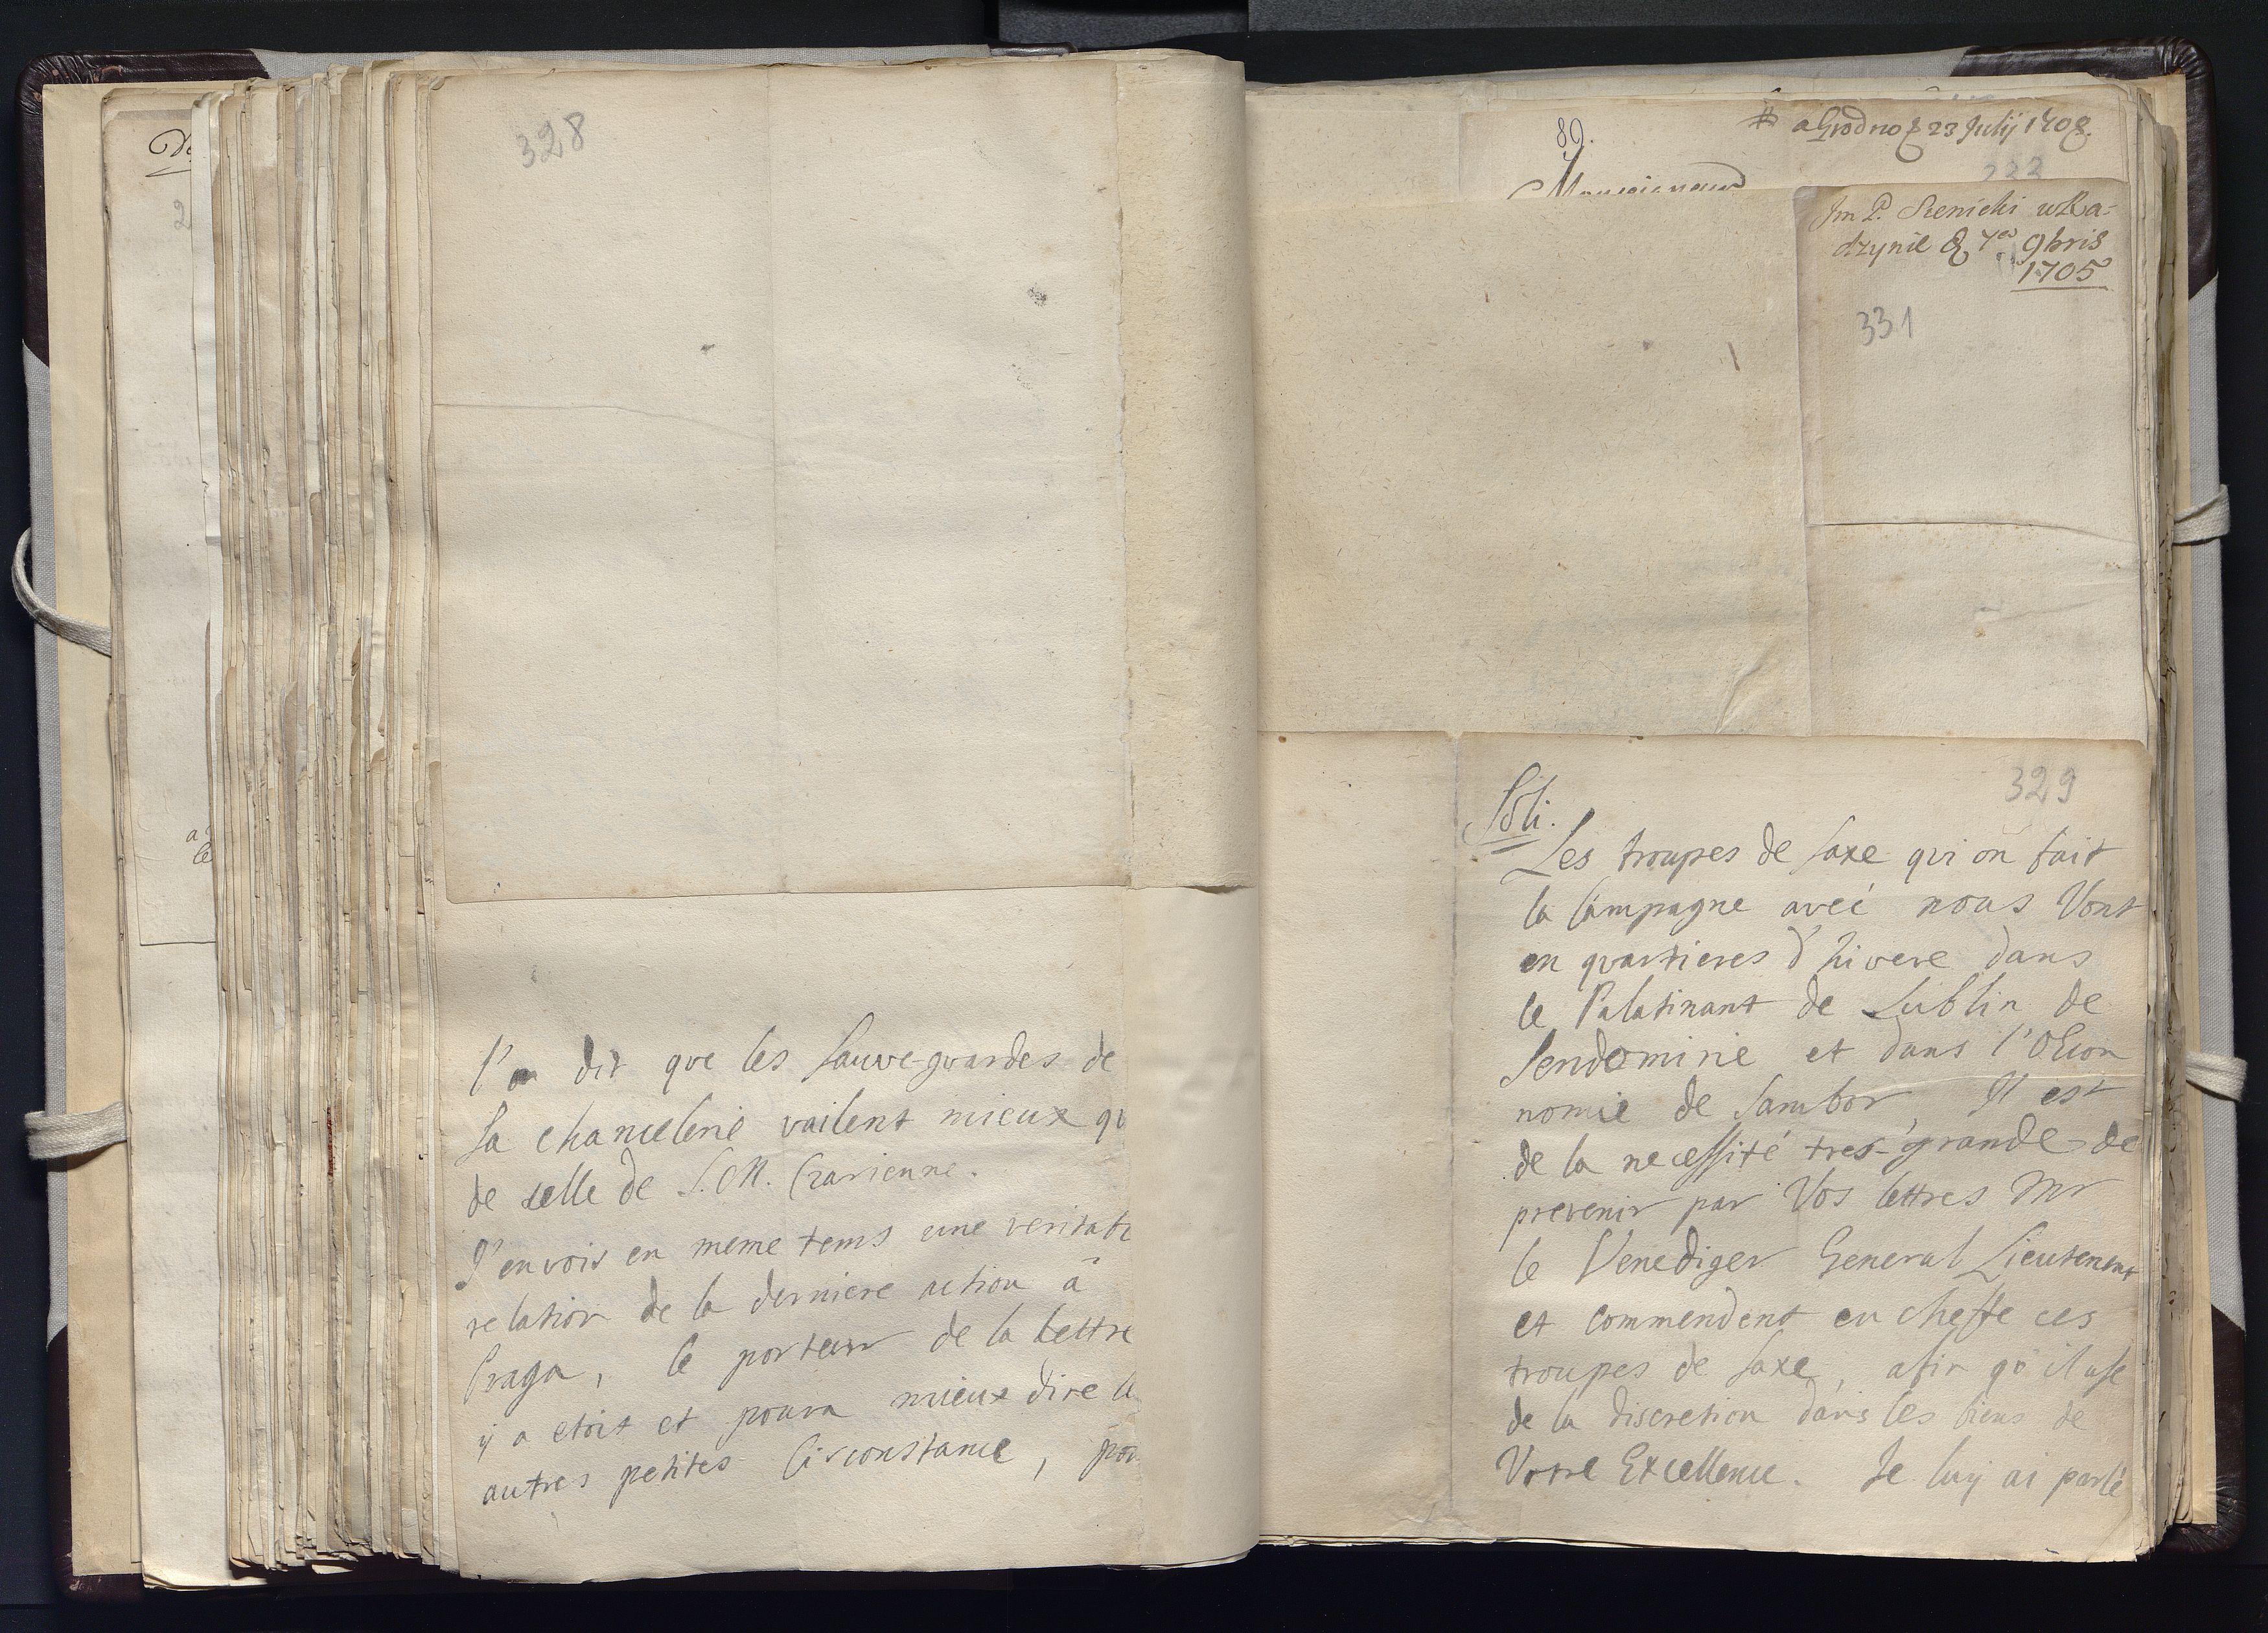 328
l'a dit que les Sauve-gvardes de
Sa chancelerie vailent mieux qv
de selle de S. M. Czarienne.
J'envois en meme tems une veritab
relation de la derniere action a
Praga, le porteur de la lettre
y a etoit et poura mieux dire le
autres petites Circonstance, pou
89.
a Grodno d 23 Julij 1708.
Monseigneur
Jm P. Sienicki w Ra-
dzynie d 7 9bris
1705
331
329
Soli.
Les troupes de Saxe qvi on fait
la Campagne avec nous Vont
en qvartieres d'hivere dans
le Palatinant de Lublin de
Sendomirie et dans l'OEcon
nomie de Sambor, Il est
de la necessité tres-grande de
prevenir par Vos lettres Mr
le Venediger General Lieutenent
et Commendent en cheffe ces
troupes de Saxe, afin qv'il use
de la discretion dans les biens de
Votre Excellence. Je luy ai parlé